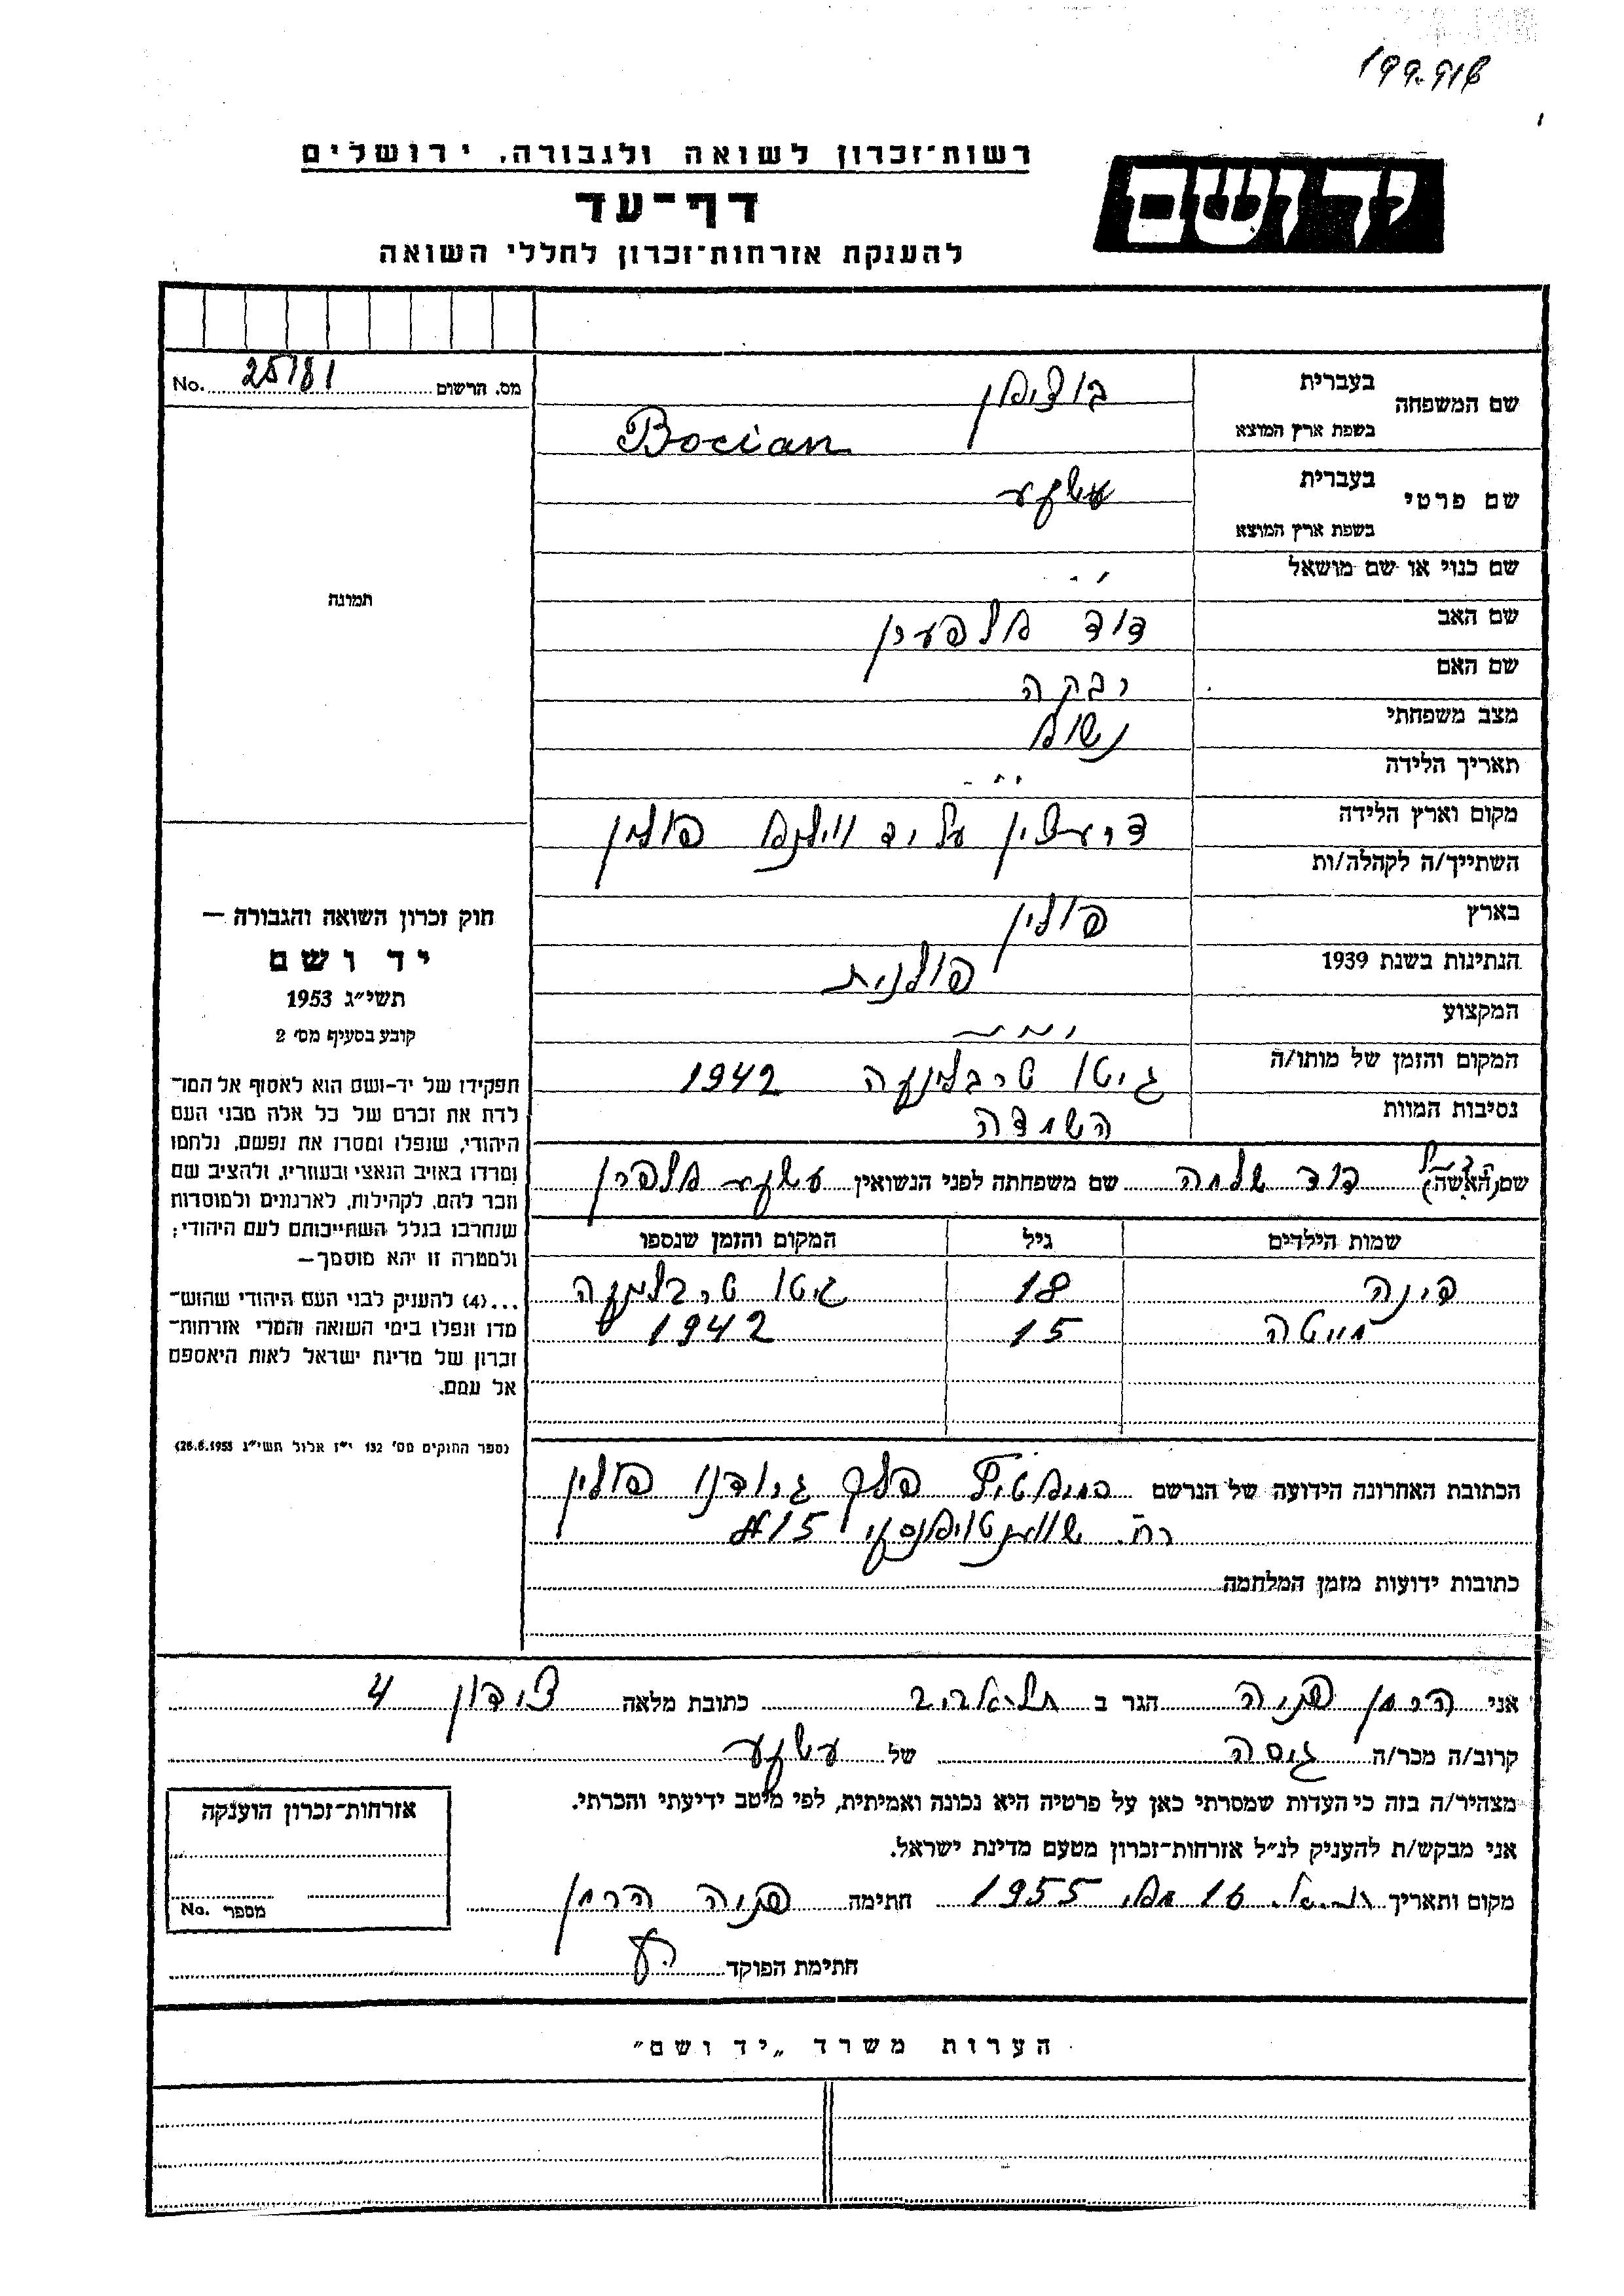 רשות־זכרון לשואה ולגבורה. ירושלים
דף־עד
להענקת אזרחות־זכרון לחללי השואה
יד ושם
מס. הרשום 25181 No.
שם המשפחה
בעברית בוציאן
בשפת ארץ המוצא Bocian
שם פרטי
בעברית עטקע
בשפת ארץ המוצא
שם כנוי או שם מושאל
שם האב דוד
שם האם רבקה
מצב משפחתי נשוא
תאריך הלידה
מקום וארץ הלידה על יד ווילנא פולין
השתייך/ה לקהלה/ות
בארץ פולין
הנתינות בשנת 1939 פולנית
המקצוע
המקום והזמן של מותו/ה גיטו טרבלינקה 1942
נסיבות המוות השמדה
שם (האשה) שם משפחתה לפני הנשואין עטקע
שמות הילדים גיל המקום והזמן שנספו
18 גיטו טרבלינקה
15 1942
הכתובת האחרונה הידועה של הנרשם פלך גרודנו פולין
רח. 15
כתובות ידועות מזמן המלחמה
תמונה
חוק זכרון השואה והגבורה —
יד ושם
תשי״ג 1953
קובע בסעיף מס׳ 2
תפקידו של יד-ושם הוא לאסוף אל המו־
לדת את זכרם של כל אלה מבני העם
היהודי, שנפלו ומסרו את נפשם, נלחמו
ומרדו באויב הנאצי ובעוזריו, ולהציב שם
וזכר להם, לקהילות, לארגונים ולמוסדות
שנחרבו בגלל השתייכותם לעם היהודי;
ולמטרה זו יהא מוסמך—
...(4) להעניק לבני העם היהודי שהוש־
מדו ונפלו בימי השואה והמרי אזרחות־
זכרון של מדינת ישראל לאות היאספם
אל עמם.
(ספר החוקים מס׳ 132 י״ז אלול תשי״ג 28.8.1953)
אני פניה הגר ב תל אביב כתובת מלאה צידון 4
קרוב/ה מכר/ה גיסה של עטקע
מצהיר/ה בזה כי העדות שמסרתי כאן על פרטיה היא נכונה ואמיתית, לפי מיטב ידיעתי והכרתי.
אני מבקש/ת להעניק לנ״ל אזרחות־זכרון מטעם מדינת ישראל.
מקום ותאריך 16 1955 חתימה פניה
חתימת הפוקד
אזרחות־זכרון הוענקה
מספר No.
הערות משרד „יד ושם״